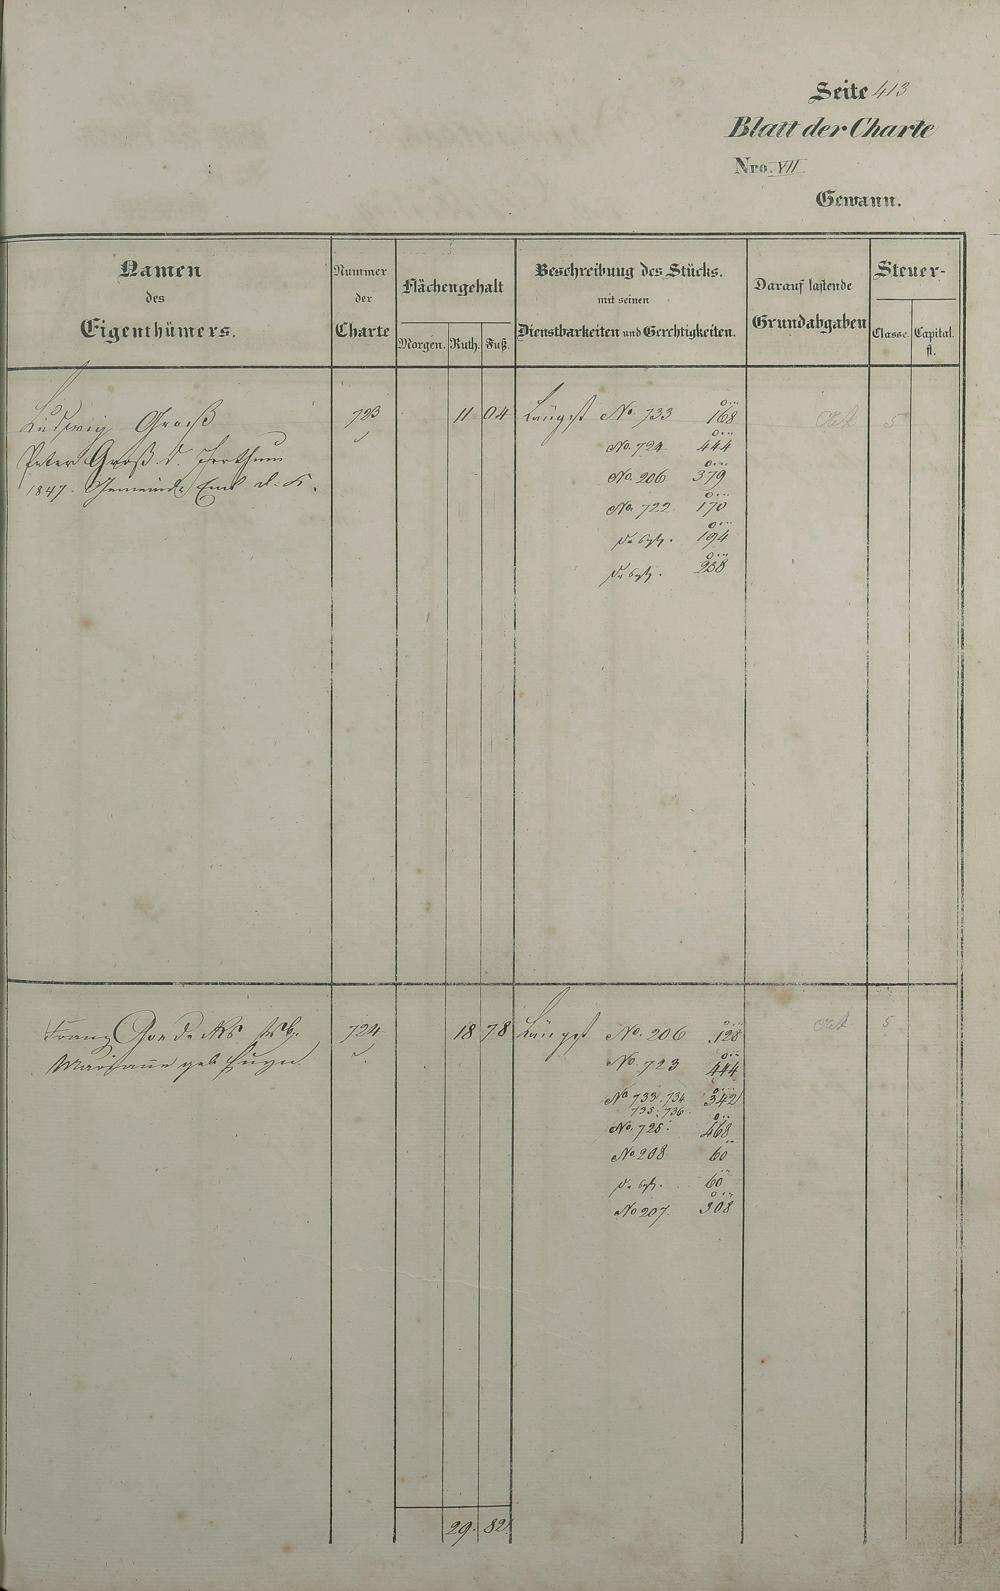 Seite 413
Blatt der Charte
Nro. VII
Gewann.
Namen
des
Eigenthümers.
Nummer
der
Charte
Flächengehalt
Morgen. Ruth. Fuß.
Beschreibung des Stücks.
mit seinen
Dienstbarkeiten und Gerechtigkeiten.
Darauf lastende
Grundabgaben
Steuer-
Classe. Capital.
fl.
Ludwig Groß 723 11 04 Längst No. 733 168
Peter Groß No. 724 444
1847. Gemeinde No. 206 379
No. 722 170
desgl. 194
desgl. 238
5
Franz 724 18 78 Längst No. 206 128
Marianne geb No. 723 444
No 733. 734 342
735. 736
No. 725. 468
No 208 60
desgl. 60
No 207. 308
5
29. 82